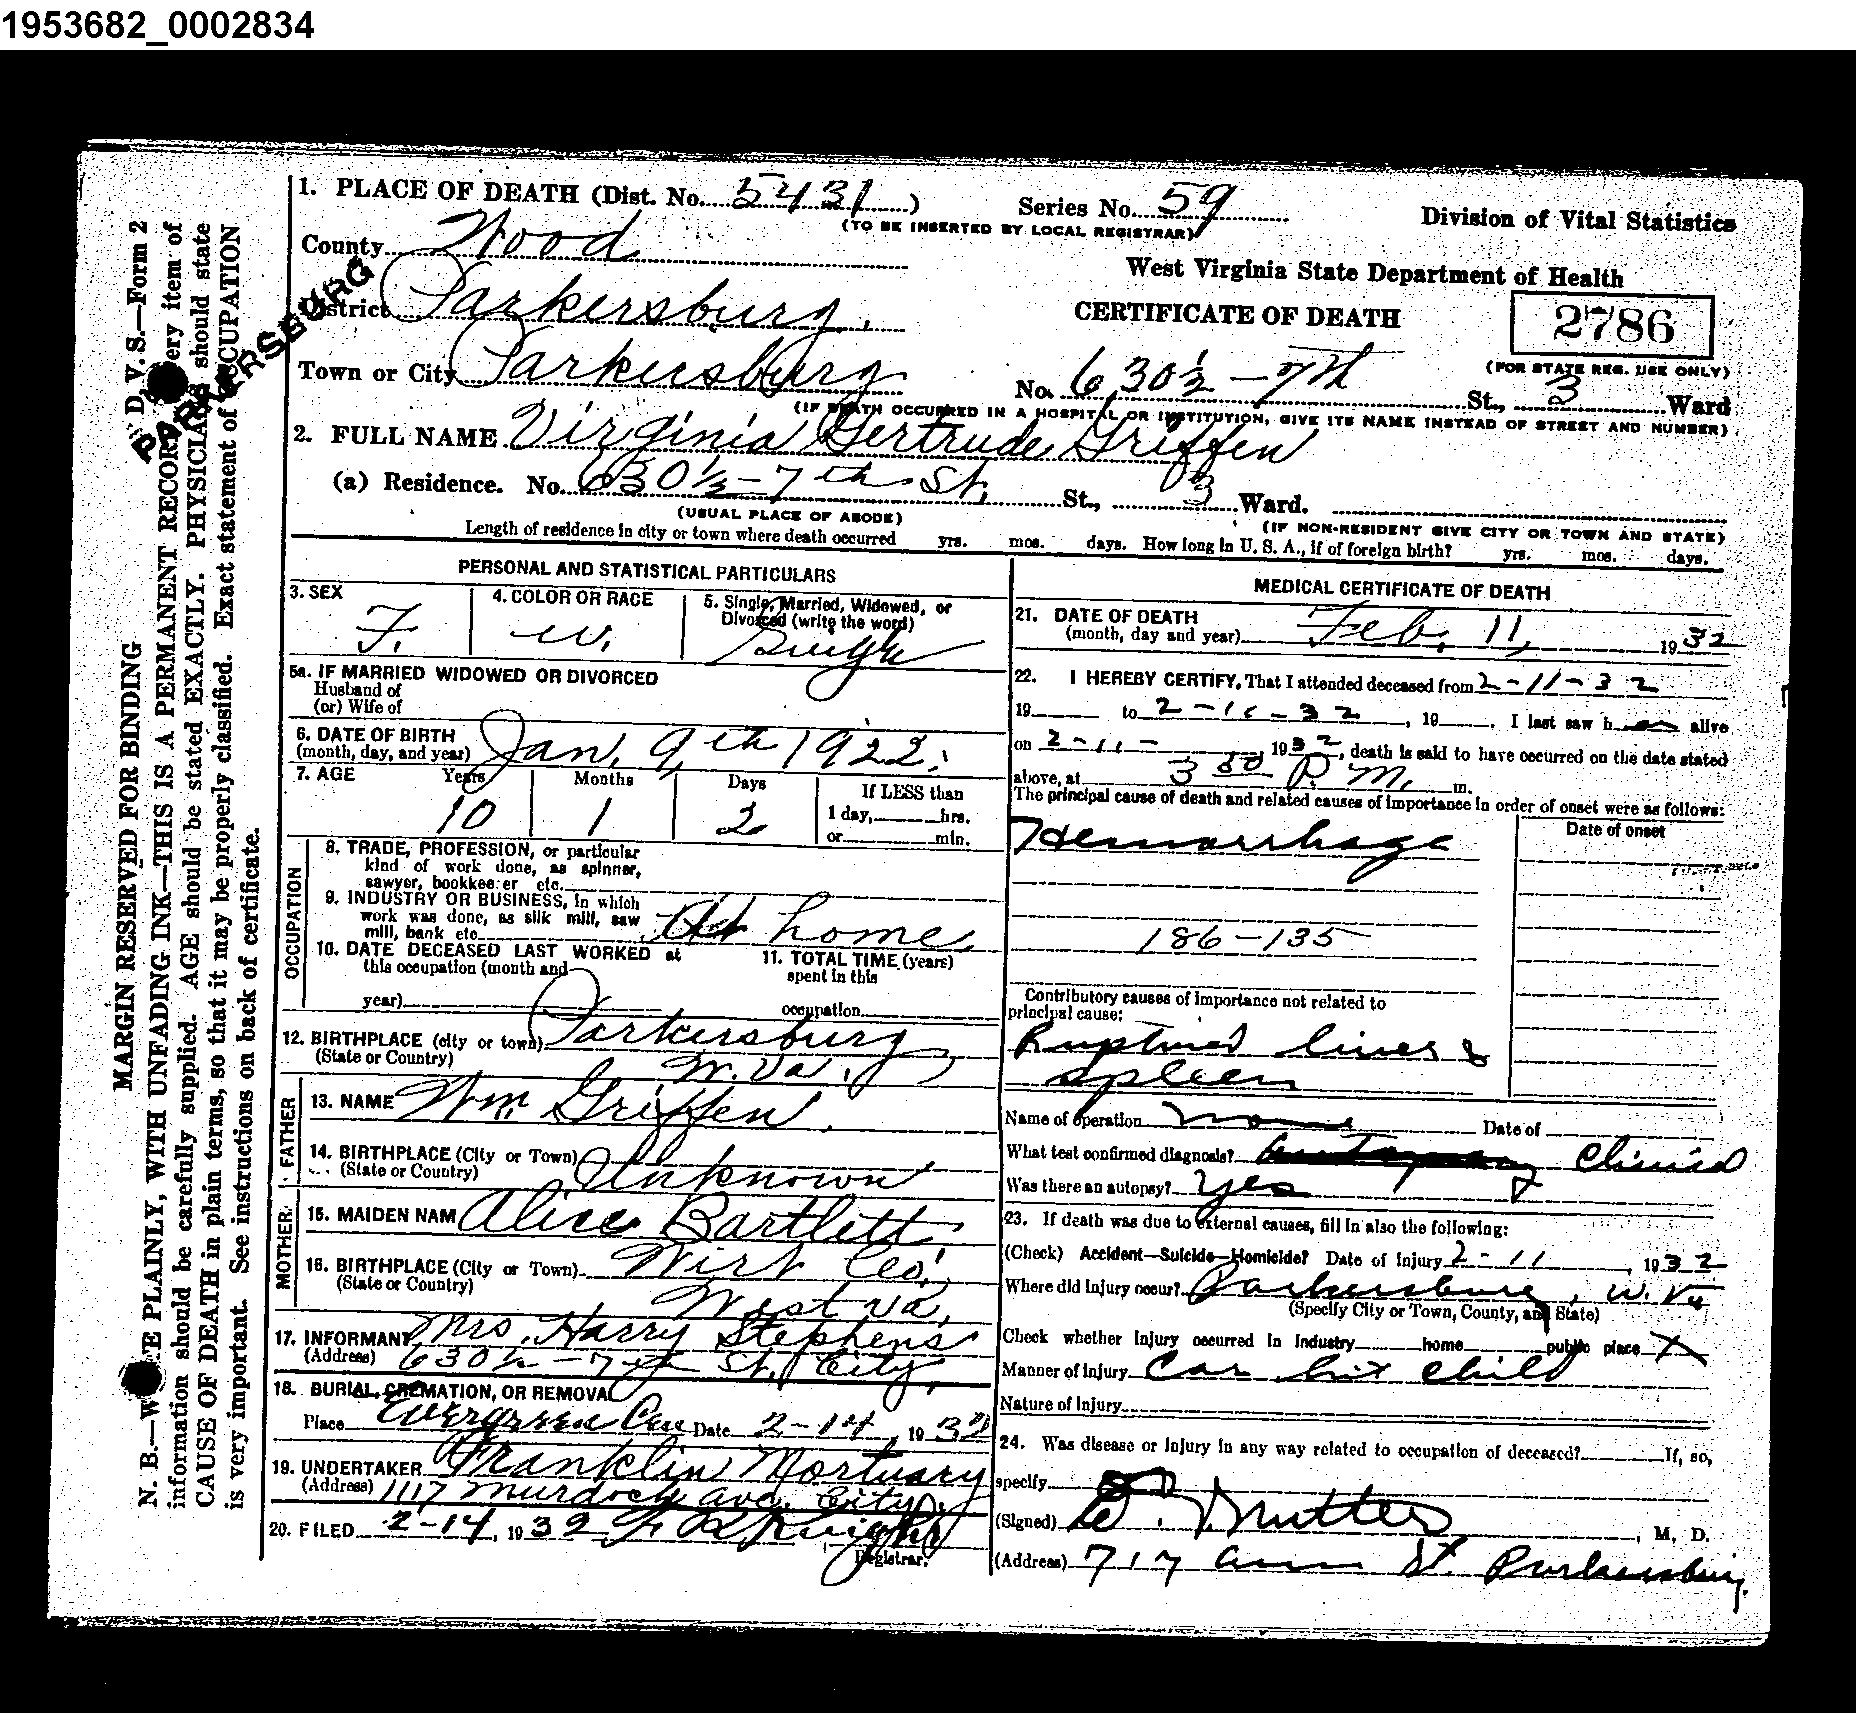 1953682_0002834
1. PLACE OF DEATH (Dist. No. 5431)
Series No. 59
(TO BE INSERTED BY LOCAL REGISTRAR)
Division of Vital Statistics
County Wood
West Virginia State Department of Health
PARKERSBURG
District Parkersburg.
CERTIFICATE OF DEATH
2786
(FOR STATE REG. USE ONLY)
Town or City Parkersburg
No. 630½ - 7th St., 3 Ward
(IF DEATH OCCURRED IN A HOSPITAL OR INSTITUTION, GIVE ITS NAME INSTEAD OF STREET AND NUMBER)
2. FULL NAME Virginia Gertrude Griffen
(a) Residence. No. 630½ - 7th St. St., 3 Ward.
(USUAL PLACE OF ABODE)
(IF NON-RESIDENT GIVE CITY OR TOWN AND STATE)
Length of residence in city or town where death occurred yrs. mos. days. How long in U. S. A., if of foreign birth? yrs. mos. days.
PERSONAL AND STATISTICAL PARTICULARS
3. SEX
F.
4. COLOR OR RACE
W.
5. Single, Married, Widowed, or
Divorced (write the word)
Single
5a. IF MARRIED WIDOWED OR DIVORCED
Husband of
(or) Wife of
6. DATE OF BIRTH
(month, day, and year) Jan, 9th 1922.
7. AGE Years Months Days If LESS than
10 1 2 1 day, hrs.
or min.
OCCUPATION
8. TRADE, PROFESSION, or particular
kind of work done, as spinner,
sawyer, bookkeeper etc.
9. INDUSTRY OR BUSINESS, in which
work was done, as silk mill, saw
mill, bank etc. At home
10. DATE DECEASED LAST WORKED at
this occupation (month and
year)
11. TOTAL TIME (years)
spent in this
occupation
12. BIRTHPLACE (city or town) Parkersburg,
(State or Country) W. Va.
FATHER
13. NAME Wm. Griffen.
14. BIRTHPLACE (City or Town) Unknown
(State or Country)
MOTHER
15. MAIDEN NAM Alice Bartlett
16. BIRTHPLACE (City or Town) Wirt Co.
(State or Country) West Va,
17. INFORMANT Mrs. Harry Stephens
(Address) 630½ - 7th St. City,
18. BURIAL, CREMATION, OR REMOVAL
Place Evergreen Cem Date 2-14 1932
19. UNDERTAKER Franklin Mortuary
(Address) 1117 Murdoch Ave. City.
20. FILED 2-14, 1932
Registrar.
MEDICAL CERTIFICATE OF DEATH
21. DATE OF DEATH
(month, day and year) Feb. 11, 1932
22. I HEREBY CERTIFY, That I attended deceased from 2-11-32
19 to 2-11-32, 19 . I last saw h er alive
on 2-11- 1932, death is said to have occurred on the date stated
above, at 3 30 P.M. m.
The principal cause of death and related causes of importance in order of onset were as follows:
Date of onset
Hemorrhage
186-135
Contributory causes of importance not related to
principal cause:
Ruptured liver &
spleen
Name of operation none Date of
What test confirmed diagnosis? Autopsy Clinical
Was there an autopsy? Yes
23. If death was due to external causes, fill in also the following:
(Check) Accident—Suicide—Homicide? Date of injury 2-11, 1932
Where did injury occur? Parkersburg, W. Va
(Specify City or Town, County, and State)
Check whether injury occurred in industry home public place X
Manner of injury Car hit child
Nature of injury
24. Was disease or injury in any way related to occupation of deceased? If, so,
specify
(Signed) M. D.
(Address) 717 Ann St. Parkersburg.
D. V. S.—Form 2
MARGIN RESERVED FOR BINDING
N. B.—WRITE PLAINLY, WITH UNFADING INK—THIS IS A PERMANENT RECORD. Every item of
information should be carefully supplied. AGE should be stated EXACTLY. PHYSICIANS should state
CAUSE OF DEATH in plain terms, so that it may be properly classified. Exact statement of OCCUPATION
is very important. See instructions on back of certificate.